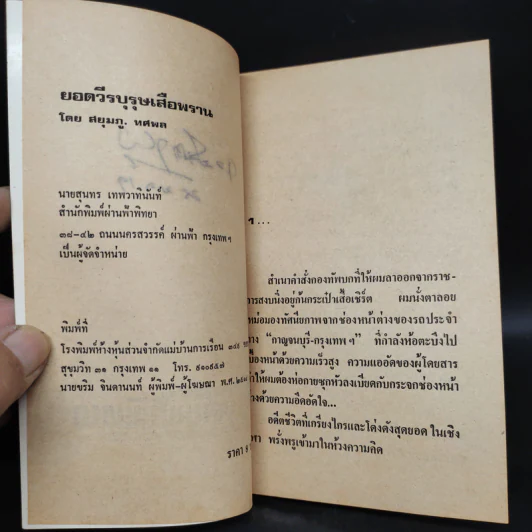 ยอดวีรบุรุษเสือพราน
โดย สยุมภู. ทศพล
นายสุนทร เทพวาทินันท์
สำนักพิมพ์ผ่านฟ้าพิทยา
๓๘-๔๒ ถนนนครสวรรค์ ผ่านฟ้า กรุงเทพ ฯ
เป็นผู้จัดจำหน่าย
พิมพ์ที่
โรงพิมพ์ห้างหุ้นส่วนจำกัดแม่บ้านการเรือน
สุขุมวิท ๓๑ กรุงเทพ ๑๑ โทร.
นายขริม จินดานนท์ ผู้พิมพ์-ผู้โฆษณา พ.ศ.
ราคา
สำเนาคำสั่งกองทัพบกที่ให้ผมลาออกจากราช-
การสงบนิ่งอยู่ก้นกระเป๋าเสื้อเชิร์ต ผมนั่งตาลอย
หม่อมองทัศนียภาพจากช่องหน้าต่างของรถประจำ
ทาง "กาญจนบุรี-กรุงเทพ ฯ" ที่กำลังห้อตะบึงไป
เบื้องหน้าด้วยความเร็วสูง ความแออัดของผู้โดยสาร
ทำให้ผมต้องห่อกายซุกหัวลงเบียดกับกระจกช่องหน้า
ต่างด้วยความอึดอัดใจ...
อดีตชีวิตที่เกรียงไกรและโด่งดังสุดยอด ในเชิง
พรั่งพรูเข้ามาในห้วงความคิด